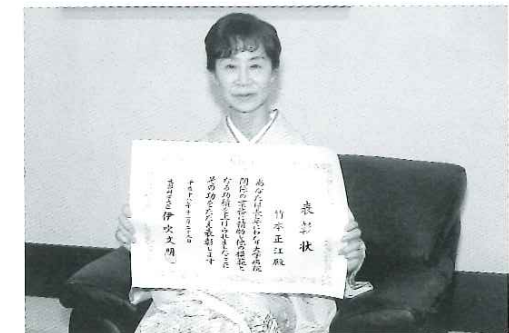 表彰状
竹本正江殿
あなたは長年にわたり大学病院
関係の業務に精励し他の模範と
なる功績を上げられましたここに
その功をたたえ表彰します
平成十八年十一月二十八日
文部科学大臣 伊吹文明